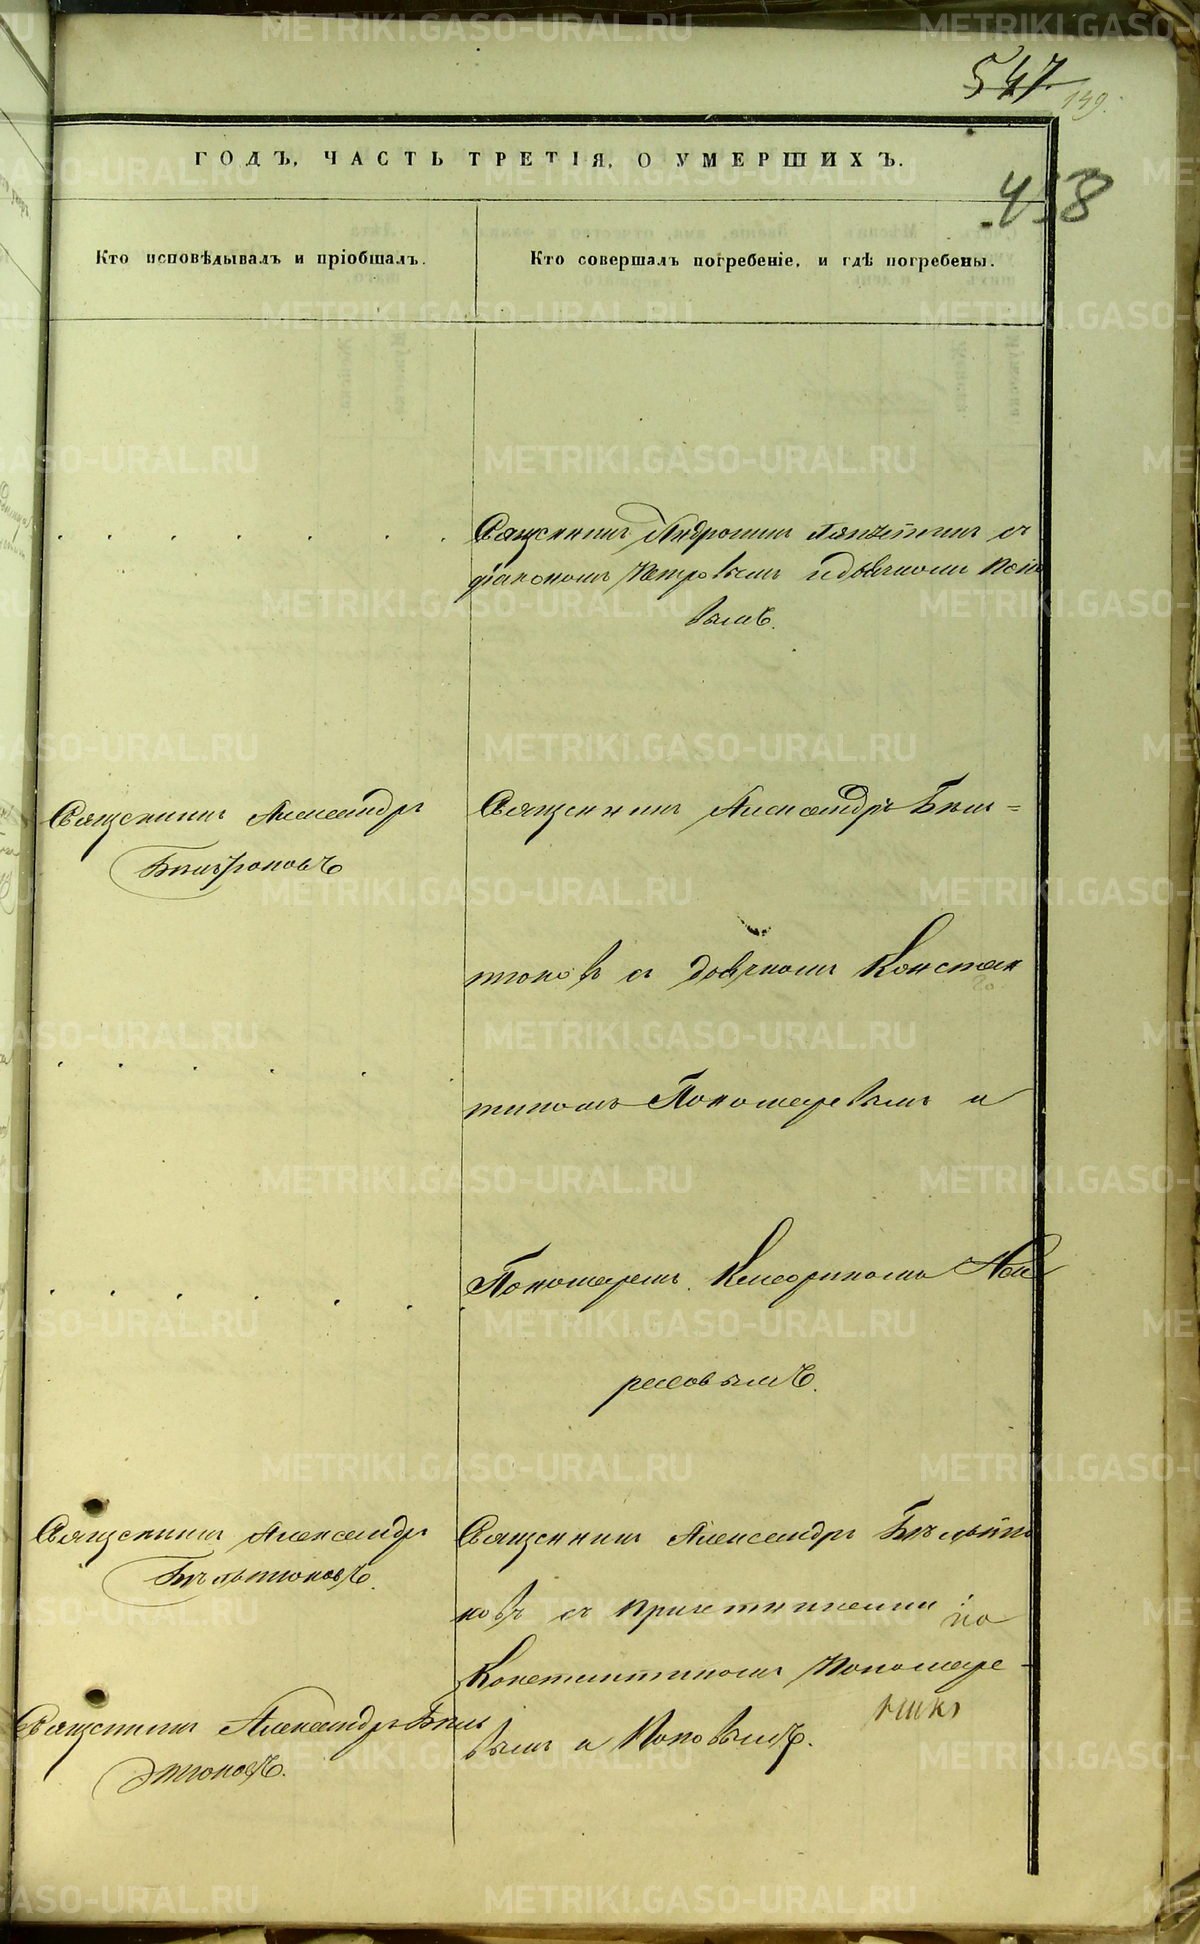 547
149.
ГОДЪ, ЧАСТЬ ТРЕТІЯ, О УМЕРШИХЪ.
458
Кто исповѣдывалъ и пріобщалъ.
Кто совершалъ погребеніе, и гдѣ погребены.
Священникъ Андроникъ съ
діакономъ Петровымъ и дьячкомъ Попо
вымъ.
Священникъ Александръ
Священникъ Александръ
тоновъ съ дьячкомъ Констан
тиномъ Пономаревымъ и
Пономаремъ
Священникъ Александръ
Бѣльтюковъ.
Священникъ Александръ Бѣльтю
ковъ съ причетниками
Константиномъ Пономаре-
вымъ и Поповымъ.
Священникъ Александръ Бѣль
тюковъ.
METRIKI.GASO-URAL.RU